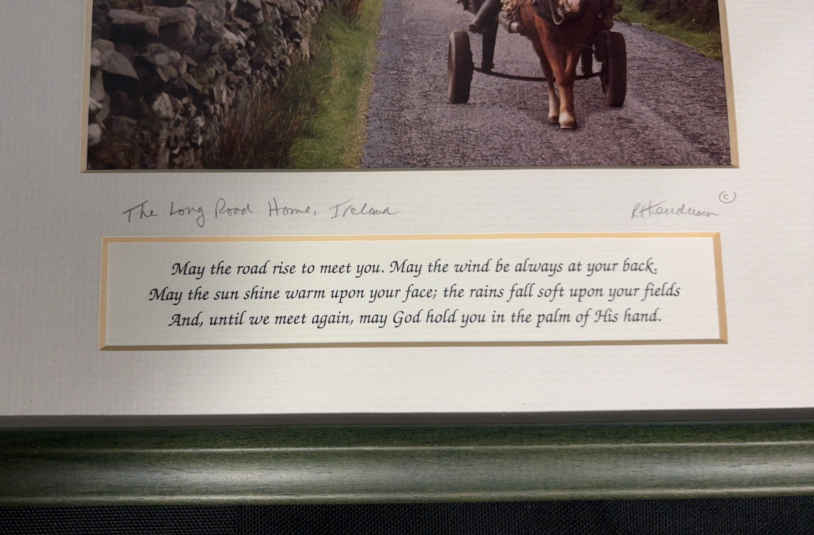 The Long Road Home, Ireland
©
May the road rise to meet you. May the wind be always at your back.
May the sun shine warm upon your face; the rains fall soft upon your fields
And, until we meet again, may God hold you in the palm of His hand.